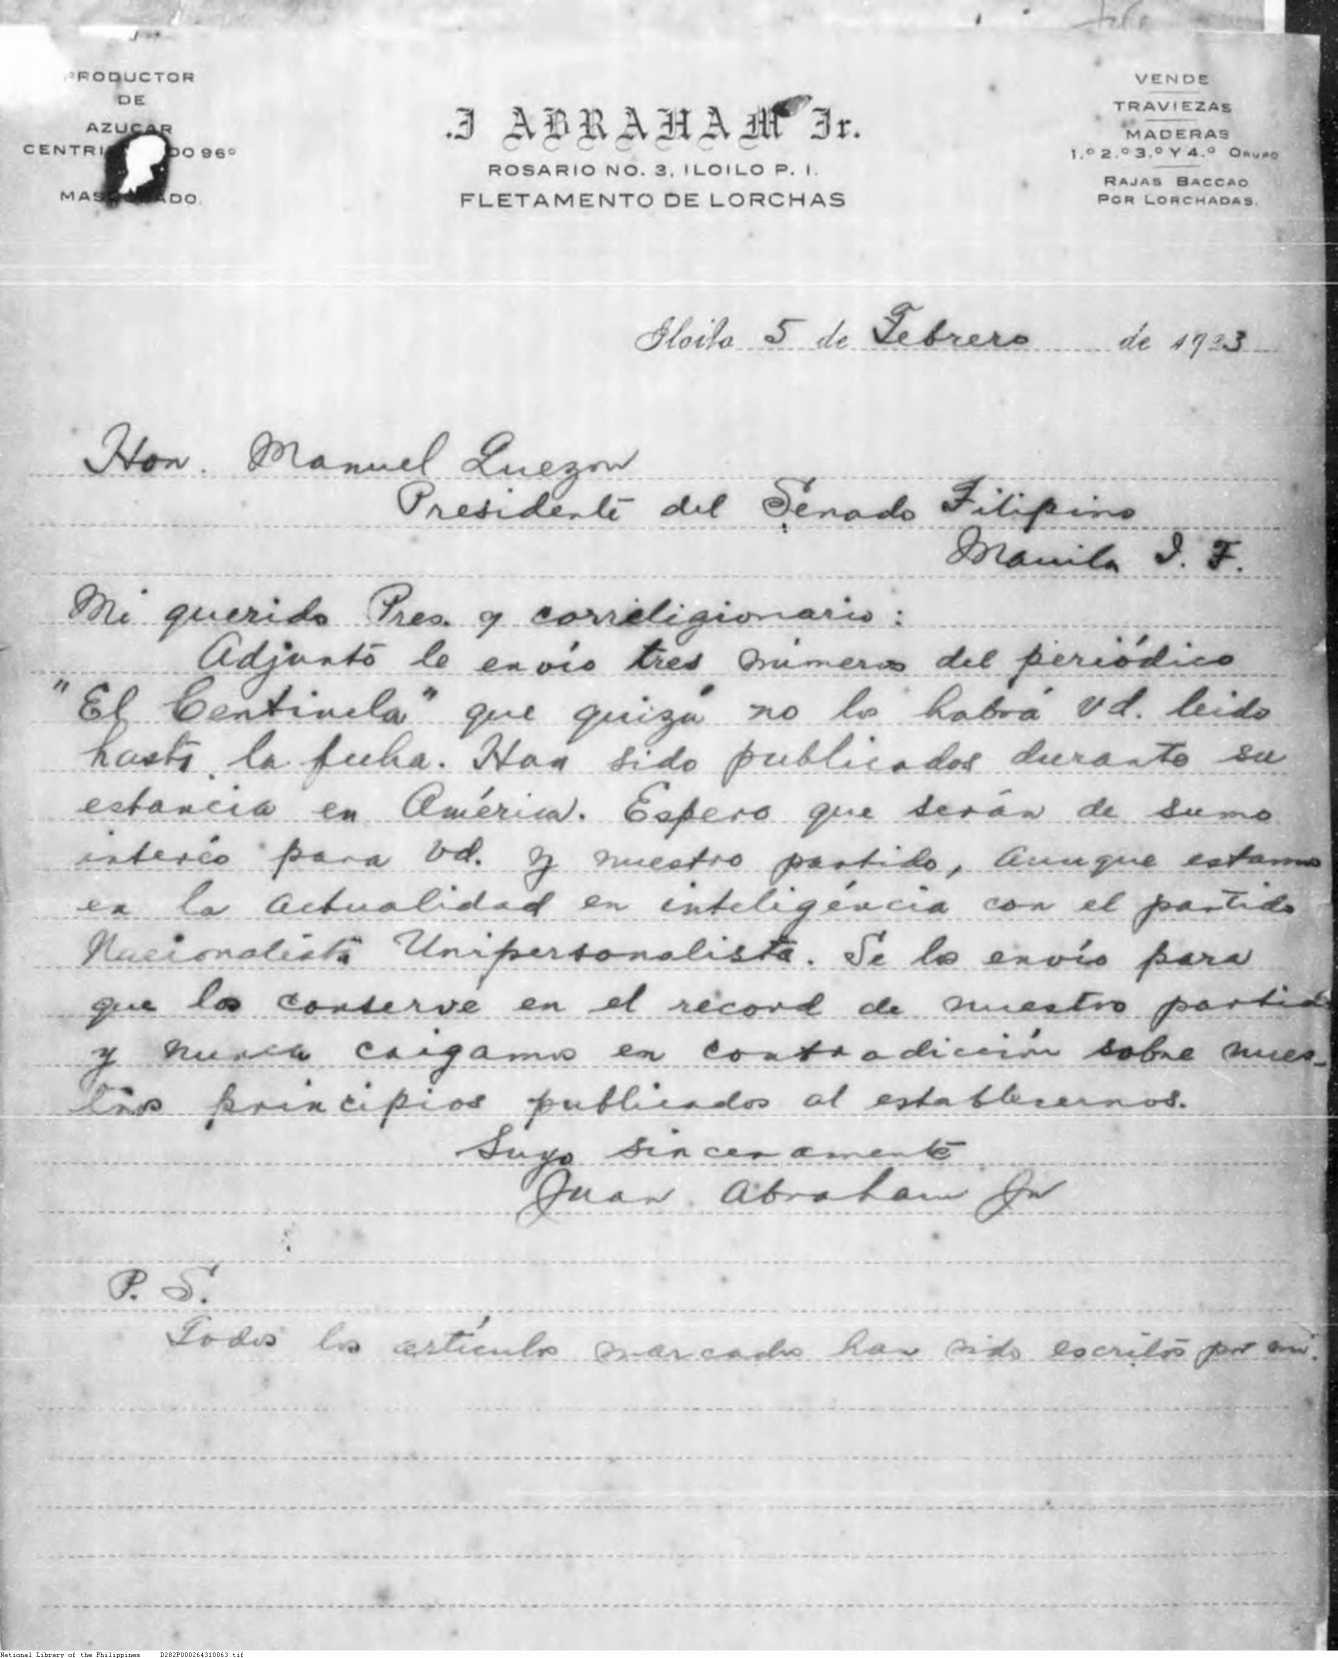 PRODUCTOR
DE
AZUCAR
CENTRI DO 96º
MAS ADO.
J ABRAHAM Jr.
ROSARIO NO. 3, ILOILO P. I.
FLETAMENTO DE LORCHAS
VENDE
TRAVIEZAS
MADERAS
1.º 2.º 3.º Y 4.º GRUPO
RAJAS BACCAO
POR LORCHADAS.
Iloilo 5 de Febrero de 1923
Hon. Manuel Quezon
Presidente del Senado Filipino
Manila I. F.
Mi querido Pres. y correligionario:
Adjunto le envío tres números del periódico
"El Centinela" que quizá no los habrá Vd. leido
hasta la fecha. Han sido publicados durante su
estancia en América. Espero que serán de sumo
interés para Vd. y nuestro partido, aunque estamos
en la actualidad en inteligéncia con el partido
Nacionalista Unipersonalista. Se los envío para
que los conserve en el record de nuestro partido
y nunca caigamos en contradicción sobre nues-
tros principios publicados al establecernos.
Suyo sinceramente
Juan Abraham Jr
P. S.
Todos los artículos marcados han sido escritos por mi.
National Library of the Philippines D282P000264310063.tif